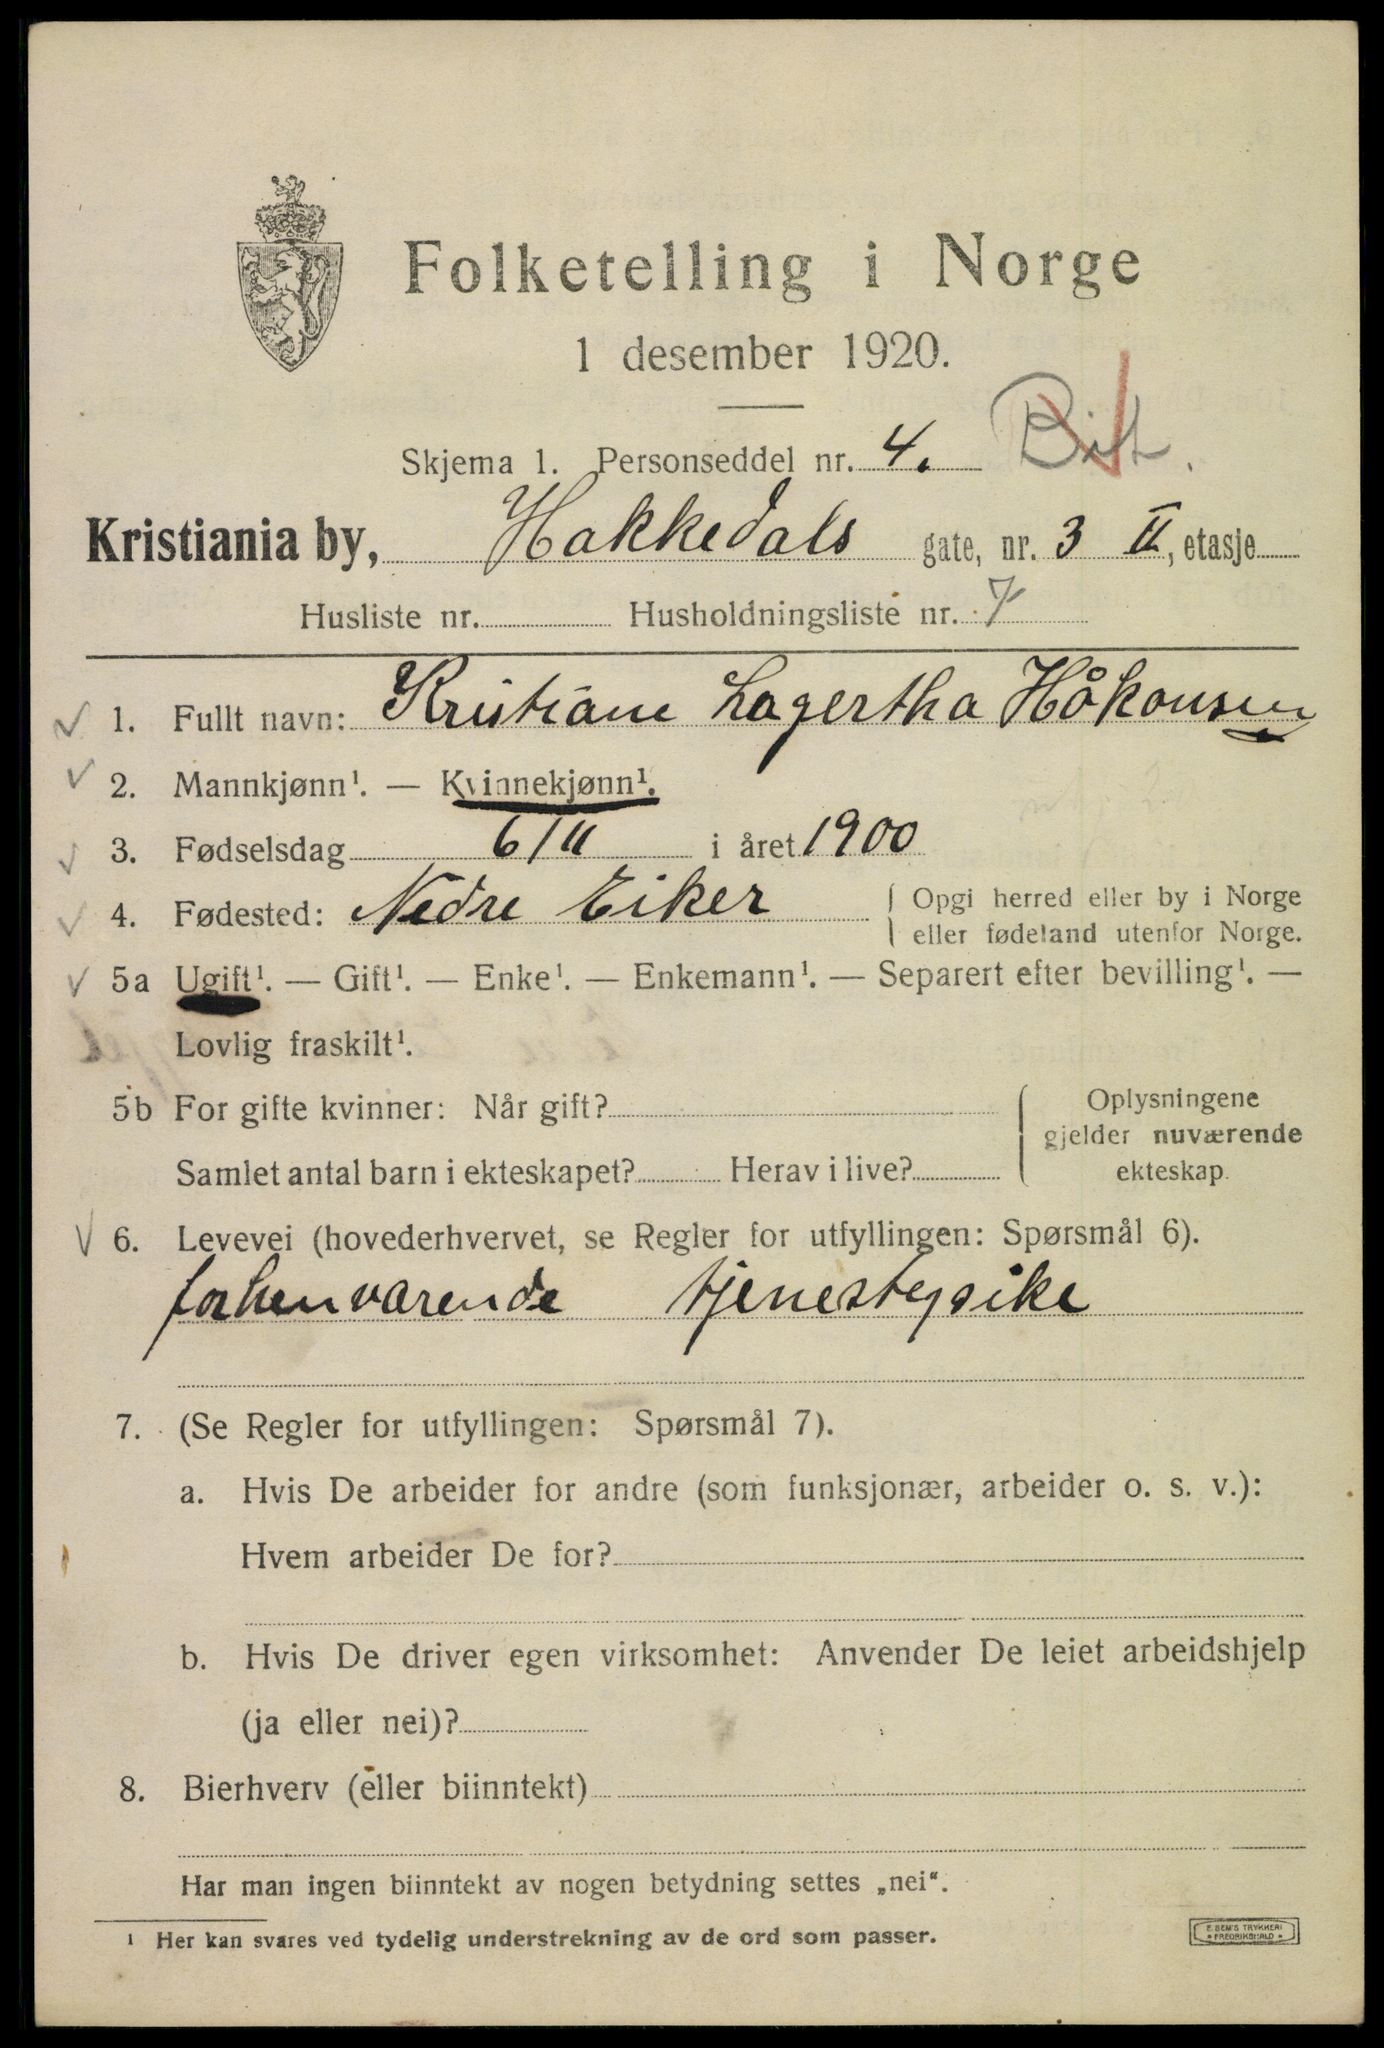 Folketelling i Norge
1 desember 1920.
Skjema 1. Personseddel nr. 4. Bist.
Kristiania by, Hakkedals gate, nr. 3 II, etasje
Husliste nr. Husholdningsliste nr. 7
1. Fullt navn: Kristiane Lagertha Håkonsen
2. Mannkjønn¹. — Kvinnekjønn¹.
3. Fødselsdag 6/11 i året 1900
4. Fødested: Nedre Eiker { Opgi herred eller by i Norge
eller fødeland utenfor Norge.
5a Ugift¹. — Gift¹. — Enke¹. — Enkemann¹. — Separert efter bevilling¹. —
Lovlig fraskilt¹.
5b For gifte kvinner: Når gift? { Oplysningene
gjelder nuværende
Samlet antal barn i ekteskapet? Herav i live? ekteskap.
6. Levevei (hovederhvervet, se Regler for utfyllingen: Spørsmål 6).
forhenvarende tjenestepike
7. (Se Regler for utfyllingen: Spørsmål 7).
a. Hvis De arbeider for andre (som funksjonær, arbeider o. s. v.):
Hvem arbeider De for?
b. Hvis De driver egen virksomhet: Anvender De leiet arbeidshjelp
(ja eller nei)?
8. Bierhverv (eller biinntekt)
Har man ingen biinntekt av nogen betydning settes „nei“.
¹ Her kan svares ved tydelig understrekning av de ord som passer.
E. SEM'S TRYKKERI
* FREDRIKSHALD *